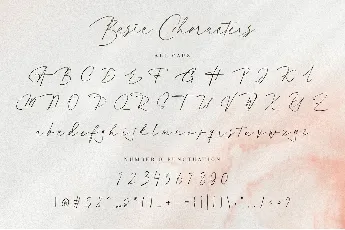 Basic Characters
ALL CAPS
A B C D E F G H I J K L
M N O P Q R S T U V W X Y Z
a b c d e f g h i j k l m n o p q r s t u v w x y z
NUMBER & PUNCTUATION
1 2 3 4 5 6 7 8 9 0